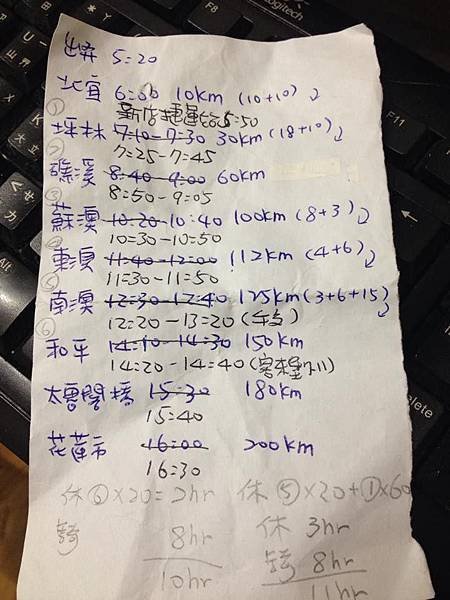 出奔 5:20
北宜 6:00 10km (10+10)
新店捷運站 5:50
① 坪林 7:10-7:30 30km (18+10)
7:25-7:45
② 礁溪 8:40-9:00 60km
8:50-9:05
③ 蘇澳 10:20-10:40 100km (8+3)
10:30-10:50
東澳 11:40-12:00 112km (4+6)
11:30-11:50
⑤ 南澳 12:30-12:40 125km (3+6+15)
12:20-13:20 (午支)
⑥ 和平 14:10-14:30 150km
14:20-14:40 (7-11)
太魯閣橋 15:30 180km
15:40
花蓮市 16:00 200km
16:30
休⑥×20=2hr 休⑤×20+①×60
騎 8hr 休 3hr
10hr 騎 8hr
11hr
Logitech
F11
Alt
Delete